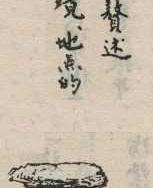 赘述
境、地点的